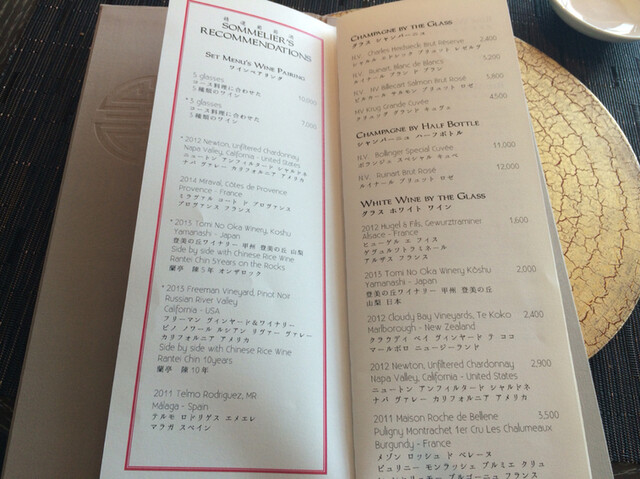 SOMMELIER'S
RECOMMENDATIONS
SET MENU'S WINE PAIRING
ワインペアリング
5 glasses 10,000
コース料理に合わせた
5種類のワイン
* 3 glasses 7,000
コース料理に合わせた
3種類のワイン
* 2012 Newton, Unfiltered Chardonnay
Napa Valley, California - United States
ニュートン アンフィルタード シャルドネ
ナパ ヴァレー カリフォルニア アメリカ
2014 Miraval, Côtes de Provence
Provence - France
ミラヴァル コート ド プロヴァンス
プロヴァンス フランス
* 2013 Tomi No Oka Winery, Koshu
Yamanashi - Japan
登美の丘ワイナリー 甲州 登美の丘 山梨
Side by side with Chinese Rice Wine
Rantei Chin 5Years on the Rocks
蘭亭 陳5年 オンザロック
* 2013 Freeman Vineyard, Pinot Noir
Russian River Valley
California - USA
フリーマン ヴィンヤード&ワイナリー
ピノ ノワール ルシアン リヴァー ヴァレー
カリフォルニア アメリカ
Side by side with Chinese Rice Wine
Rantei Chin 10years
蘭亭 陳10年
2011 Telmo Rodriguez, MR
Málaga - Spain
テルモ ロドリゲス エメエレ
マラガ スペイン
CHAMPAGNE BY THE GLASS
グラス シャンパーニュ
N.V. Charles Heidsieck Brut Réserve 2,400
シャルル エドシック ブリュット レゼルヴ
N.V. Ruinart, Blanc de Blancs 3,200
ルイナール ブラン ド ブラン
N.V. NV Billecart Salmon Brut Rosé 3,800
ビルカール サルモン ブリュット ロゼ
MV Krug Grande Cuvée 4,500
クリュッグ グランド キュヴェ
CHAMPAGNE BY HALF BOTTLE
シャンパーニュ ハーフボトル
N.V. Bollinger Special Cuvée 11,000
ボランジェ スペシャル キュベ
N.V. Ruinart Brut Rosé 12,000
ルイナール ブリュット ロゼ
WHITE WINE BY THE GLASS
グラス ホワイト ワイン
2012 Hugel & Fils, Gewurztraminer 1,600
Alsace - France
ヒューゲル エ フィス
ゲヴュルツトラミネール
アルザス フランス
2013 Tomi No Oka Winery Kōshu 2,000
Yamanashi - Japan
登美の丘ワイナリー 甲州 登美の丘
山梨 日本
2012 Cloudy Bay Vineyards, Te Koko 2,400
Marlborough - New Zealand
クラウディ ベイ ヴィンヤード テ ココ
マールボロ ニュージーランド
2012 Newton, Unfiltered Chardonnay 2,900
Napa Valley, California - United States
ニュートン アンフィルタード シャルドネ
ナパ ヴァレー カリフォルニア アメリカ
2011 Maison Roche de Bellene 3,500
Puligny Montrachet 1er Cru Les Chalumeaux
Burgundy - France
メゾン ロッシュ ド ベレーヌ
ピュリニー モンラッシェ プルミエ クリュ
ブルゴーニュ フランス